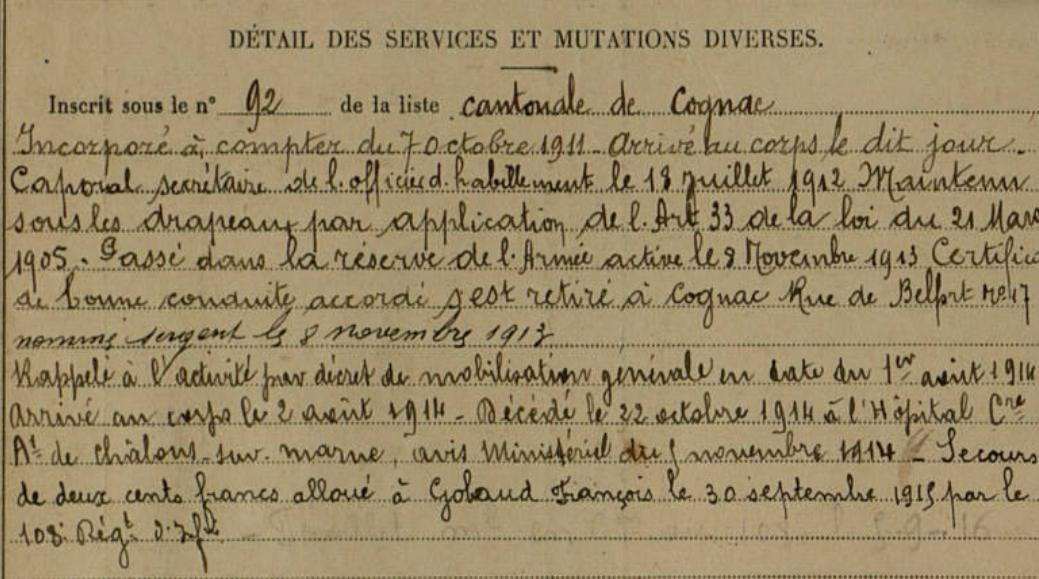 DÉTAIL DES SERVICES ET MUTATIONS DIVERSES.
Inscrit sous le n° 92 de la liste cantonale de Cognac
Incorporé à compter du 7 Octobre 1911 - Arrivé au corps le dit jour -
Caporal secrétaire de l'officier d'habillement le 18 Juillet 1912 Maintenu
sous les drapeaux par application de l'Art 33 de la loi du 21 Mars
1905. Passé dans la réserve de l'Armée active le 8 Novembre 1913 Certific
de bonne conduite accordé s'est retiré à Cognac Rue de Belfort N° 17
nommé sergent le 8 novembre 1913
Rappelé à l'activité par décret de mobilisation générale en date du 1er août 1914
arrivé au corps le 2 août 1914 - Décédé le 22 octobre 1914 à l'Hôpital Cre
At de Châlons-sur-marne, avis Ministériel du 5 novembre 1914 - Secours
de deux cents francs alloué à Gobaud François le 30 septembre 1915 par le
108e Régt d'Infie